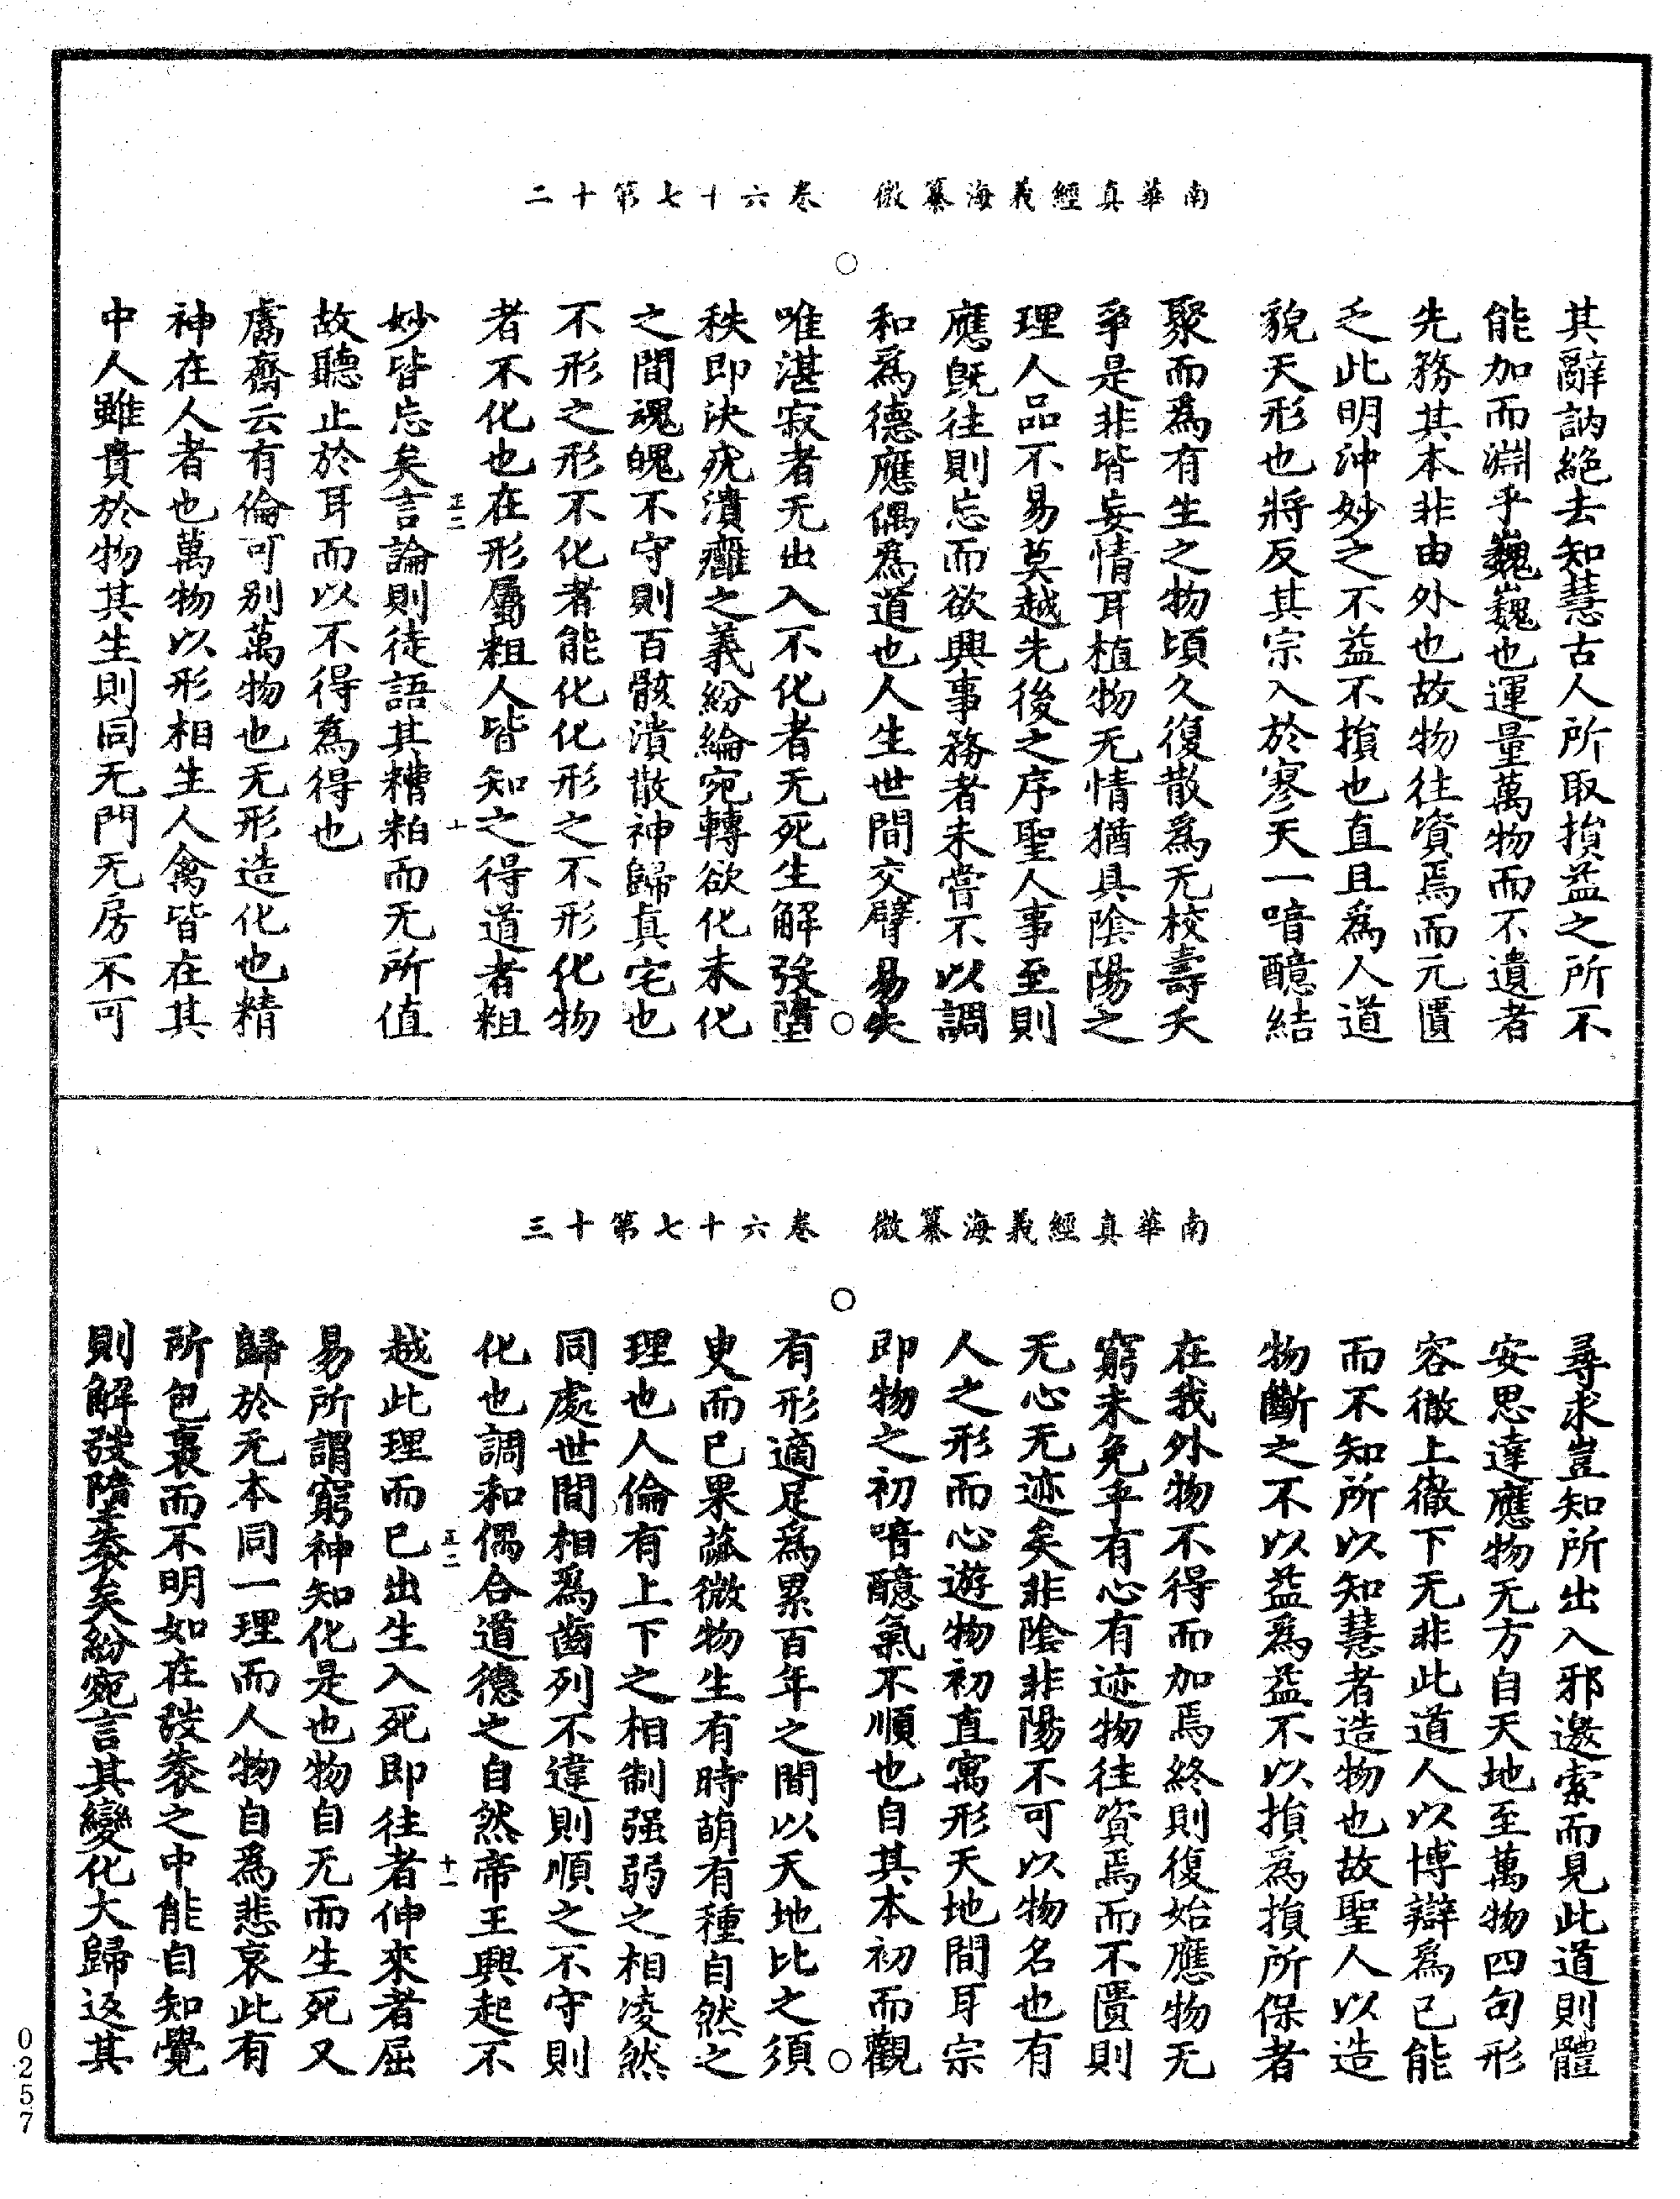 南華真經義海纂微　卷六十七第十二
其辭訥絶去知慧古人所取損益之所不
能加而淵乎巍巍也運量萬物而不遺者
先務其本非由外也故物往資焉而元匱
乏此明沖妙之不益不損也直且爲人道
貌天形也將反其宗入於寥天一喑醷結
聚而爲有生之物頃久復散爲无校壽夭
爭是非皆妄情耳植物无情猶具陰陽之
理人品不易莫越先後之序聖人事至則
應旣往則忘而欲興事務者未嘗不以調
和爲德應偶爲道也人生世間交臂易失
唯湛寂者无出入不化者无死生解弢墮
袠即決疣潰癰之義紛綸宛轉欲化未化
之間魂魄不守則百骸潰散神歸真宅也
不形之形不化者能化化形之不形化物
者不化也在形屬粗人皆知之得道者粗
正二　十
妙皆忘矣言論則徒語其糟粕而无所值
故聽止於耳而以不得爲得也
鬳齋云有倫可别萬物也无形造化也精
神在人者也萬物以形相生人禽皆在其
中人雖貴於物其生則同无門无房不可
南華真經義海纂微　卷六十七第十三
尋求豈知所出入邪邀索而見此道則體
安思達應物无方自天地至萬物四句形
容徹上徹下无非此道人以博辯爲已能
而不知所以知慧者造物也故聖人以造
物斷之不以益爲益不以損爲損所保者
在我外物不得而加焉終則復始應物无
窮未免乎有心有迹物往資焉而不匱則
无心无迹矣非陰非陽不可以物名也有
人之形而心遊物初直寓形天地間耳宗
即物之初喑醷氣不順也自其本初而觀
有形適足爲累百年之間以天地比之須
㬰而已果蓏微物生有時萌有種自然之
理也人倫有上下之相制强弱之相凌然
同處世間相爲齒列不違則順之不守則
化也調和偶合道德之自然帝王興起不
正二　十一
越此理而已出生入死即往者伸來者屈
易所謂窮神知化是也物自无而生死又
歸於无本同一理而人物自爲悲哀此有
所包裹而不明如在弢袠之中能自知覺
則解弢墮袠矣紛宛言其變化大歸返其
0257